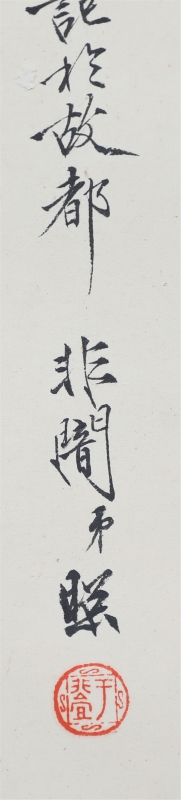 記於故都
非闇弟照
于非